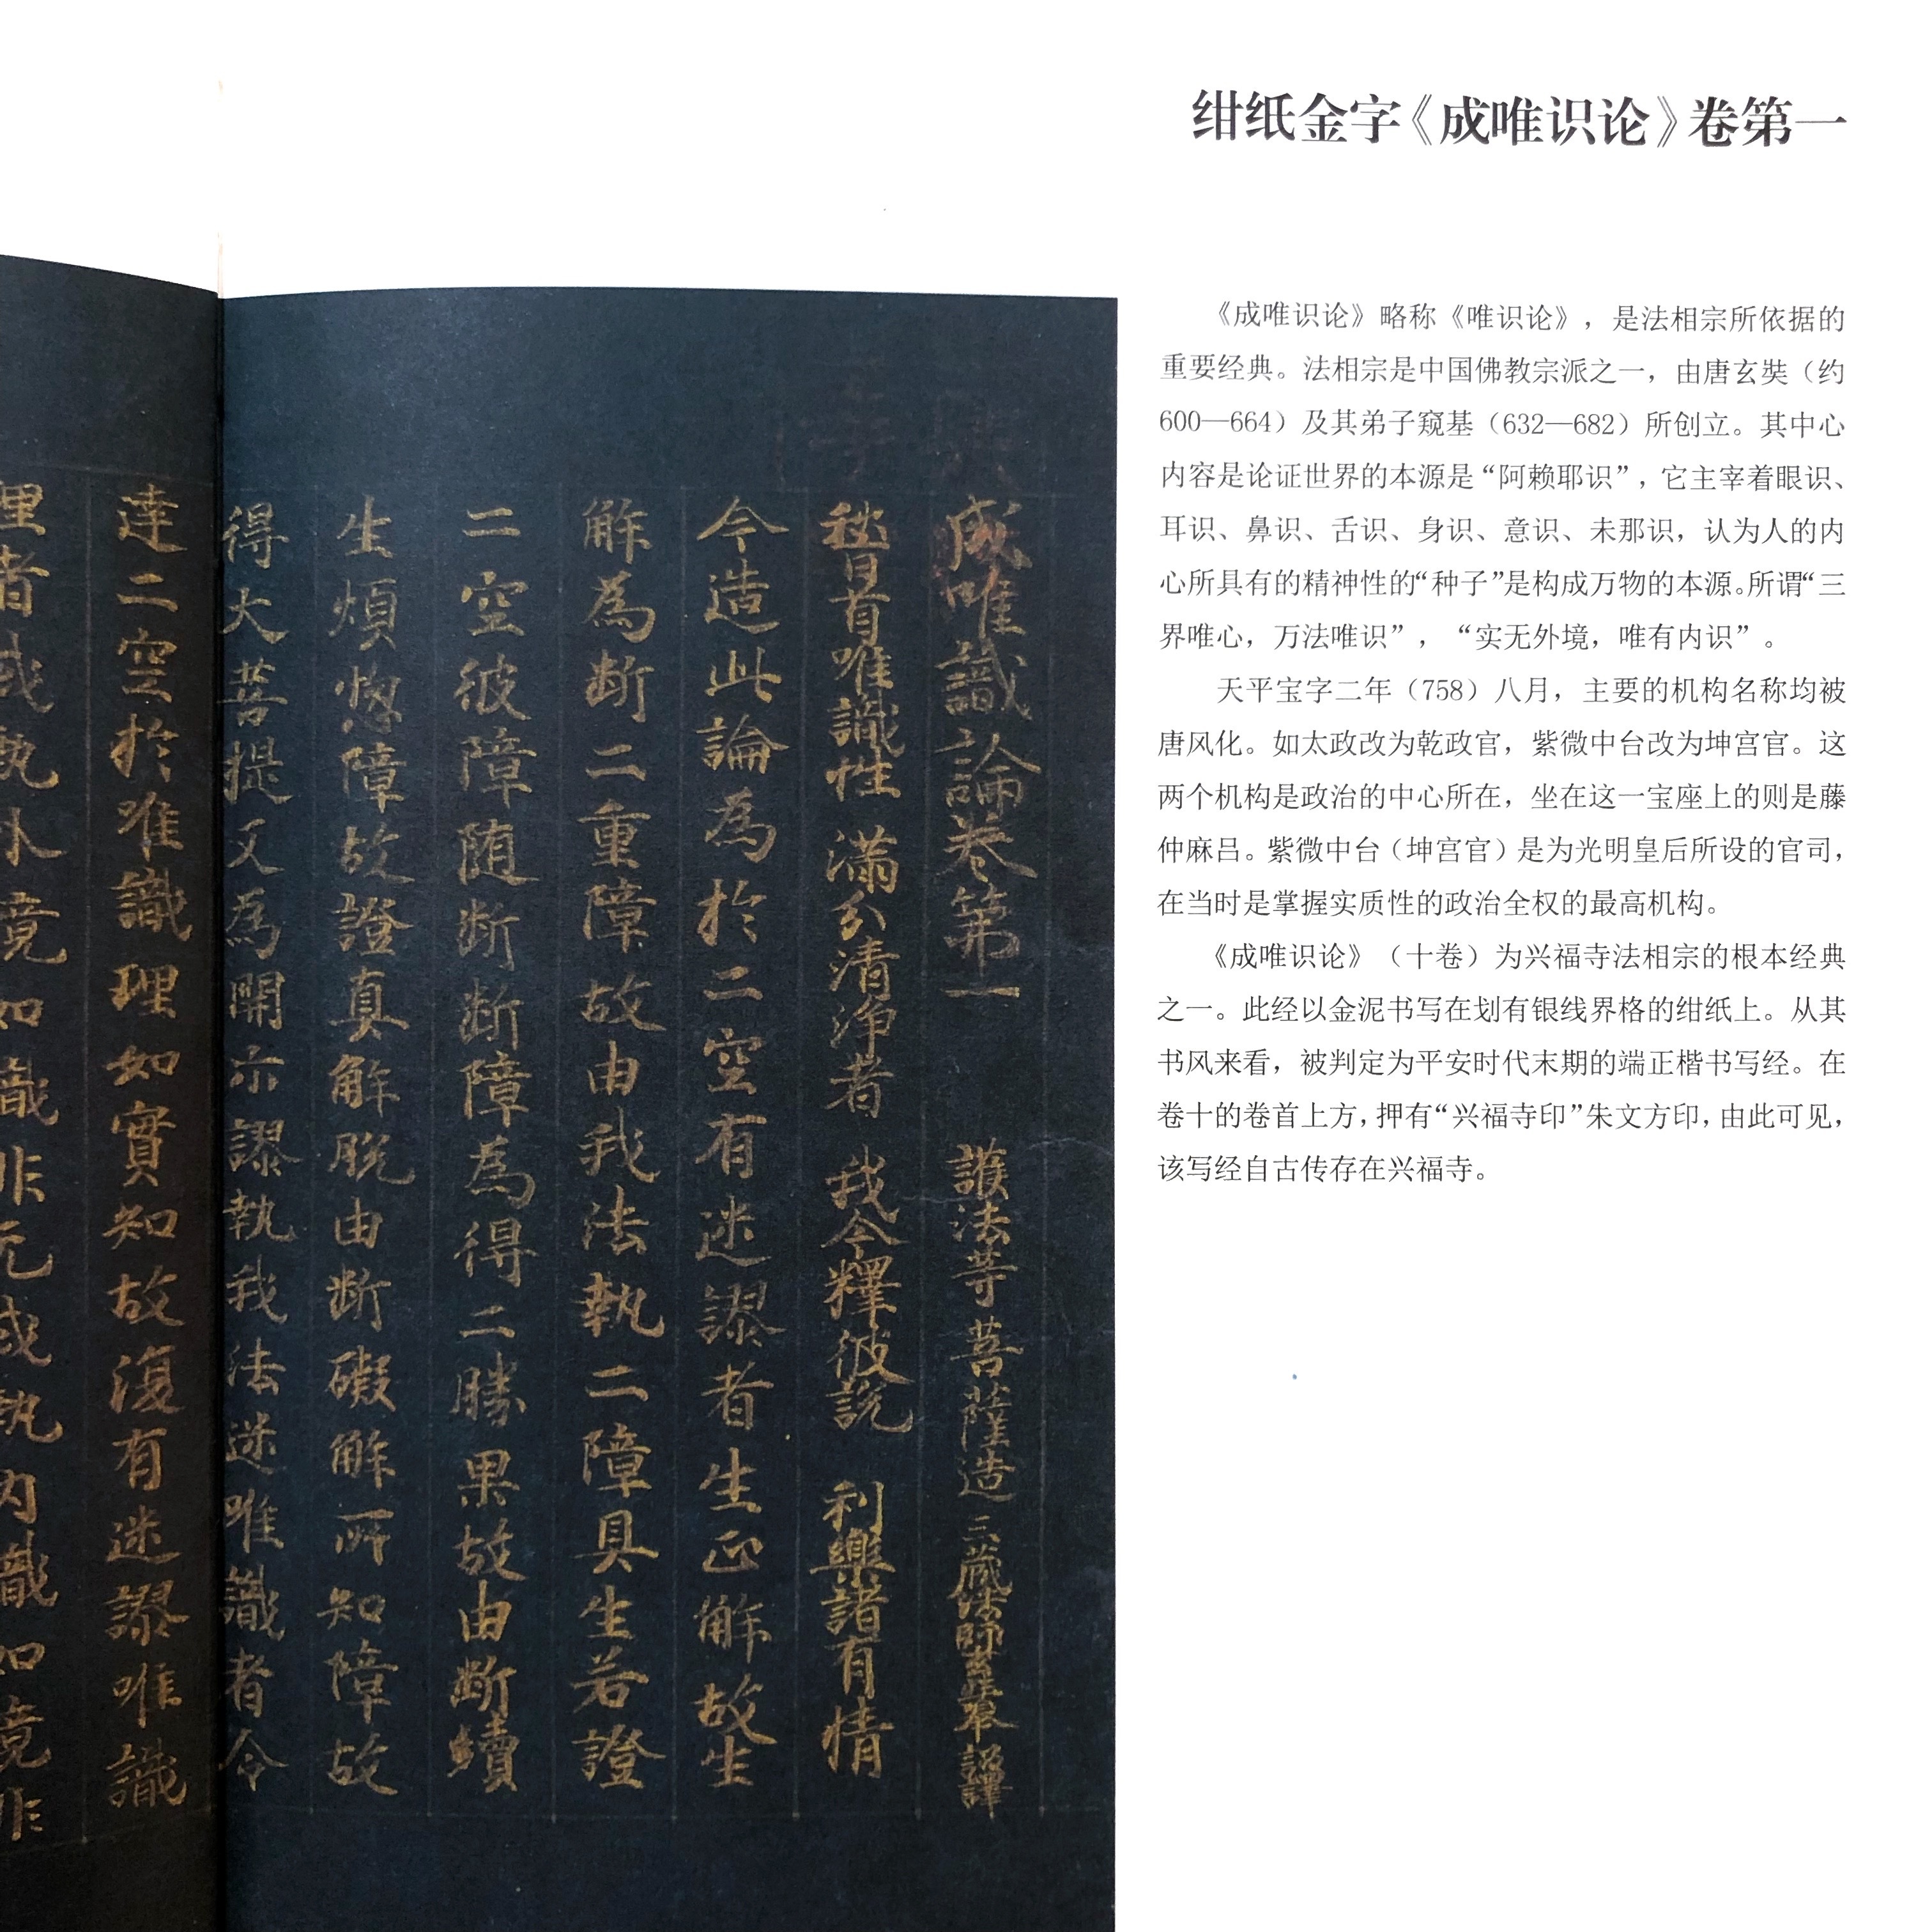 绀纸金字《成唯识论》卷第一
《成唯识论》略称《唯识论》，是法相宗所依据的
重要经典。法相宗是中国佛教宗派之一，由唐玄奘（约
600—664）及其弟子窥基（632—682）所创立。其中心
内容是论证世界的本源是“阿赖耶识”，它主宰着眼识、
耳识、鼻识、舌识、身识、意识、未那识，认为人的内
心所具有的精神性的“种子”是构成万物的本源。所谓“三
界唯心，万法唯识”，“实无外境，唯有内识”。
天平宝字二年（758）八月，主要的机构名称均被
唐风化。如太政改为乾政官，紫微中台改为坤宫官。这
两个机构是政治的中心所在，坐在这一宝座上的则是藤
仲麻吕。紫微中台（坤宫官）是为光明皇后所设的官司，
在当时是掌握实质性的政治全权的最高机构。
《成唯识论》（十卷）为兴福寺法相宗的根本经典
之一。此经以金泥书写在划有银线界格的绀纸上。从其
书风来看，被判定为平安时代末期的端正楷书写经。在
卷十的卷首上方，押有“兴福寺印”朱文方印，由此可见，
该写经自古传存在兴福寺。
成唯識論卷第一 護法等菩薩造 三藏法師玄奘奉 詔譯
稽首唯識性 滿分清淨者 我今釋彼說 利樂諸有情
今造此論為於二空有迷謬者生正解故生
解為斷二重障故由我法執二障具生若證
二空彼障随断断障為得二勝果故由断續
生煩惱障故證真解脱由断礙解所知障故
得大菩提又為開示謬執我法迷唯識者令
達二空於唯識理如實知故復有迷謬唯識
理者或執外境如識非无或執内識如境非